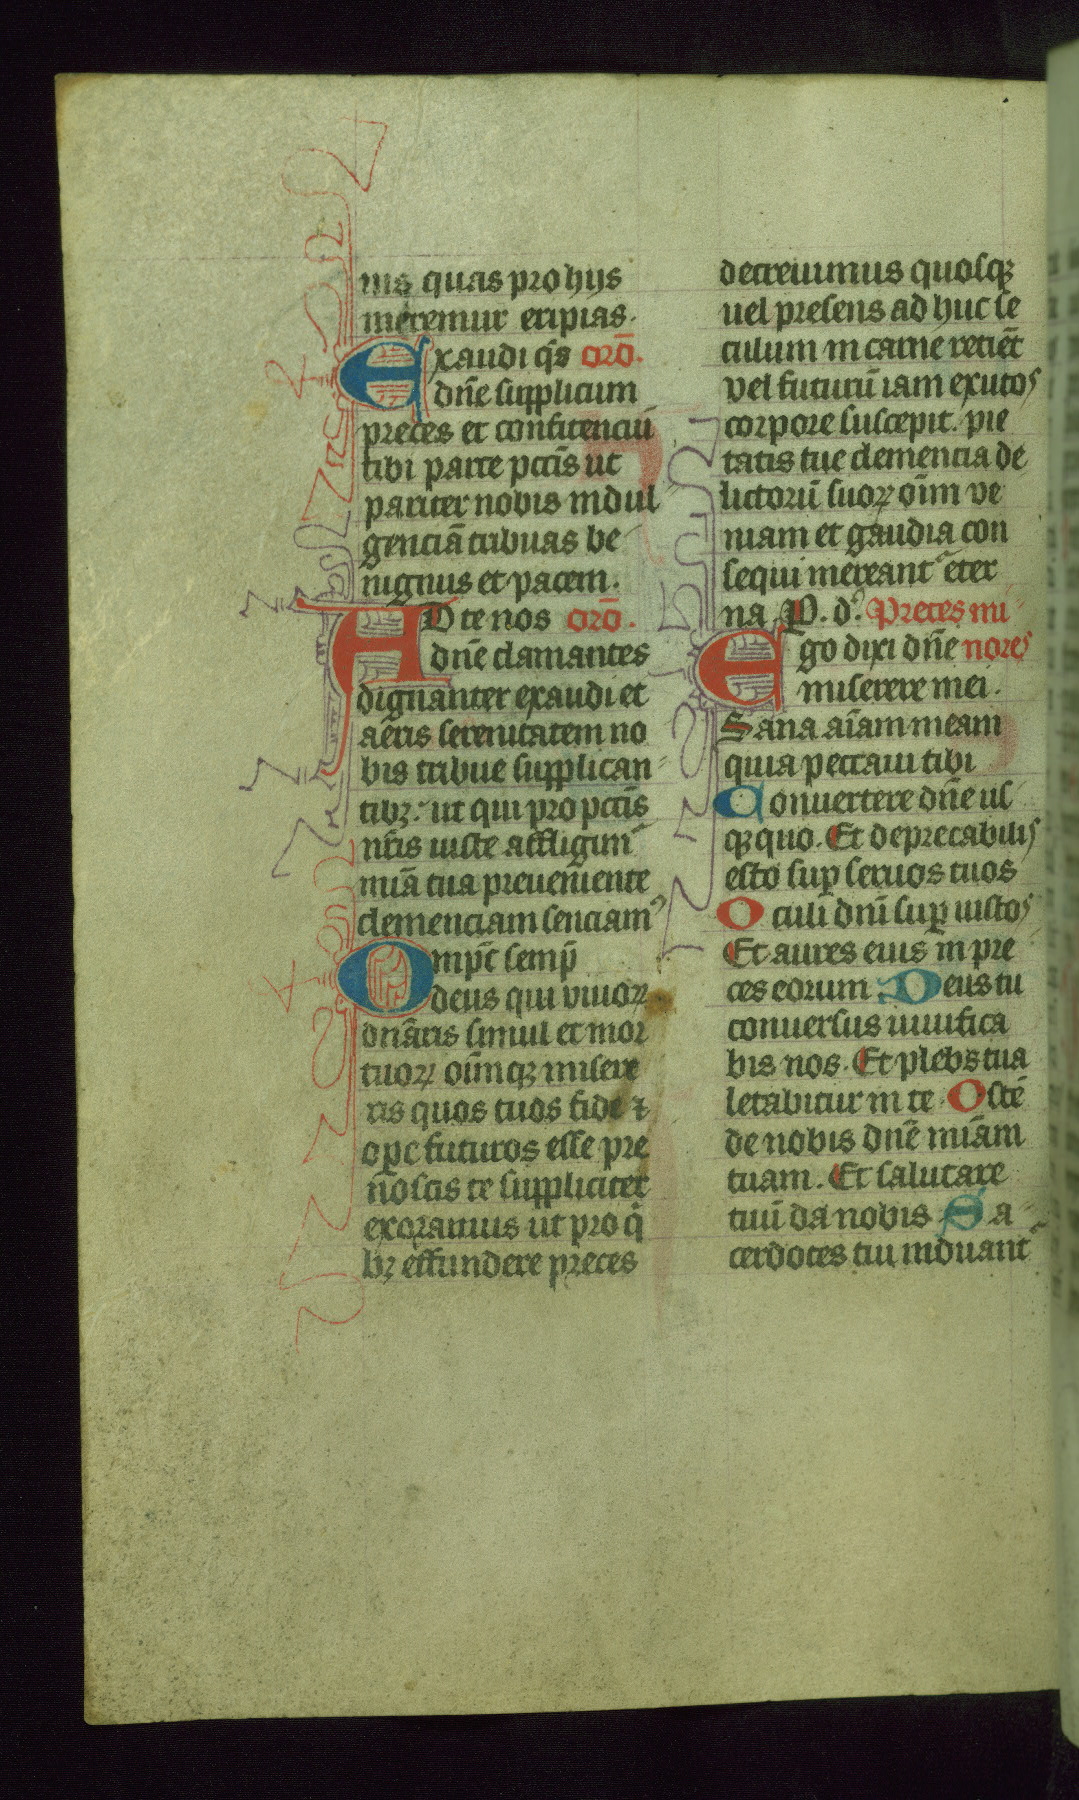 nis quas pro hijs
meremur eripias.
Exaudi q̄s orō.
dn̄e supplicum
preces et confitenciū
tibi parce pcc̄is ut
pariter nobis indul⸗
genciā tribuas be
nignus et pacem.
AD te nos orō.
dn̄e clamantes
dignanter exaudi et
aeris serenitatem no
bis tribue supplican⸗
tibꝫ. ut qui pro pcc̄is
nr̄is iuste affligim᷒
miā tua preueniente
clemenciam senciam᷒
Omp̄c semp̄
deus qui viuoꝝ
dn̄aris simul et mor
tuoꝝ oīmqꝫ misere
ris quos tuos fide ⁊
oꝑe futuros esse pre
noscis te suppliciter
exoramus ut pro q̇
bꝫ effundere preces
decreuimus quosqꝫ
uel presens ad huc se
culum in carne retiēt
vel futurū iam exutos
corpore suscepit. pie
tatis tue clemencia de
lictorū suoꝝ oīm ve
niam et gaudia con
sequi mereant᷑ eter
na. P. d᷒. Preces mi⸗
Ego dixi dn̄e nores
miserere mei.
Sana aīam meam
quia peccaui tibi
Conuertere dn̄e us
qꝫ quo. Et deprecabilis
esto suꝑ seruos tuos
Oculi dn̄i suꝑ iustos
Et aures eius in pre
ces eorum. Deus tu
conuersus uiuifica
bis nos. Et plebs tua
letabitur in te. Ostē
de nobis dn̄e miām
tuam. Et salutare
tuū da nobis. Sa⸗
cerdotes tui induant᷑